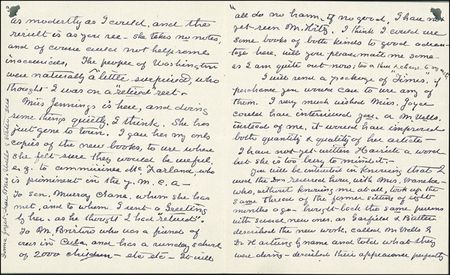 as modestly as I could, and the
result is as you see - she takes no notes,
and of course could not help some
inaccuracies. The people of Washington
were naturally a little surprised, who
thought I was on a "retired" rest.
Miss Jennings is here, and doing
some things quietly, I think. She has
just gone to town. I gave her my only
copies of the new books, to use where
she felt sure they would be useful,
e.g. to Commissioner McFarland, who
is prominent in the Y. M. C. A. -
to Sen. Murray Crane, whom she has
met, and to whom I sent a greeting
by her - as he thought I had "retired".
To Mr. who was a friend of
ours in Cuba, and has a runaday school
of 2000 children - etc etc - It will
all do no harm, if no good. I have not
yet seen Mr. Hitz. I think I could use
some books of both kinds to good advan-
tage here, will you please mail me some -
as I am quite out now,
I will send a package of "Times", if
perchance you would care to use any of
them. I very much wished Miss Joyce
could have interviewed you, or Mr. Wells,
instead of me, it would have improved
both quantity & quality of her article -
I have not yet written Harriette a word
but she is too busy to mind it. -
You will be interested in knowing that I
went the hour reserved here, with Mrs.
who, without knowing me at all, took up the
same thread of the former sitting of eight
months ago - brought back the same persons
with several new ones, as Garfield & Butler
described the new work, called Mr Wells &
Dr H by name and told what they
were doing - described their appearance perfectly